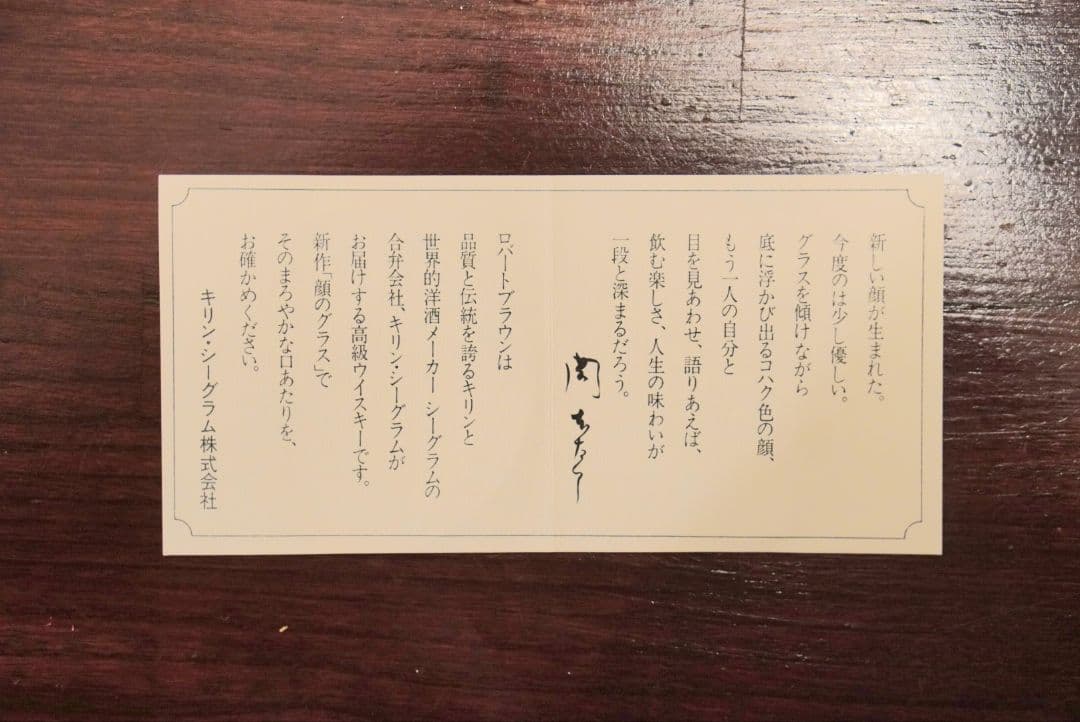 新しい顔が生まれた。
今度のは少し優しい。
グラスを傾けながら
底に浮かび出るコハク色の顔、
もう一人の自分と
目を見あわせ、語りあえば、
飲む楽しさ、人生の味わいが
一段と深まるだろう。
岡本太郎
ロバートブラウンは
品質と伝統を誇るキリンと
世界的洋酒メーカー シーグラムの
合弁会社、キリン・シーグラムが
お届けする高級ウイスキーです。
新作「顔のグラス」で
そのまろやかな口あたりを、
お確かめください。
キリン・シーグラム株式会社